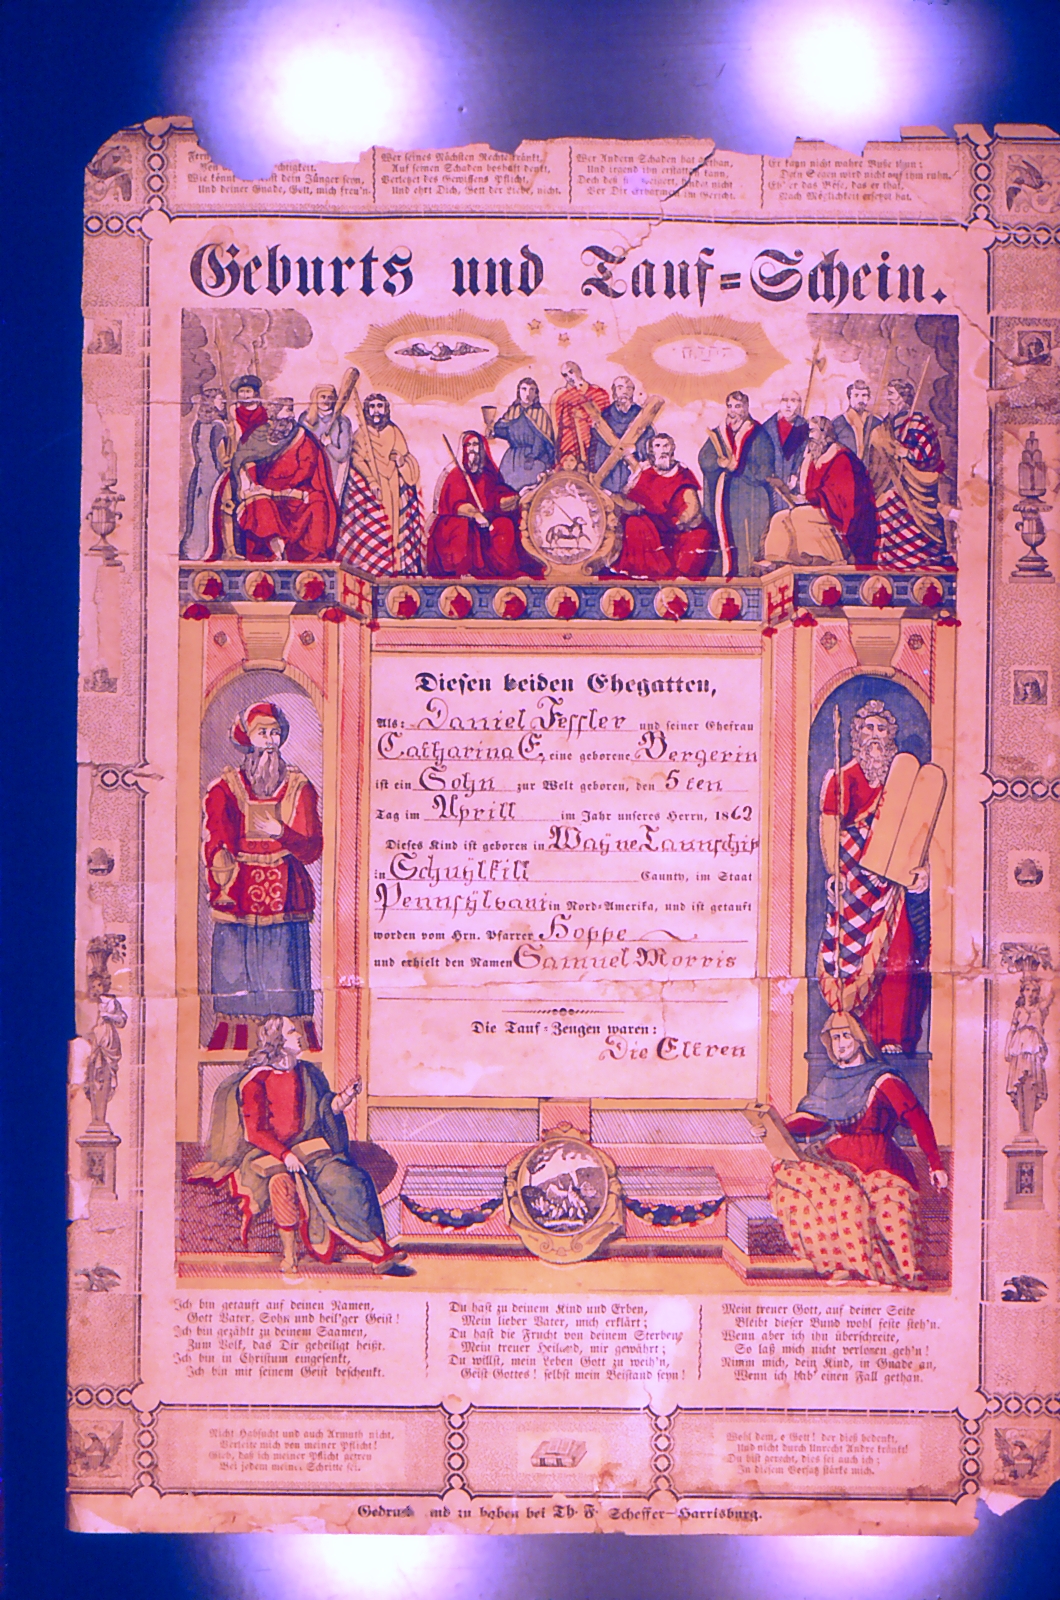 Wer seines Nächsten Rechte kränkt,
Auf seinen Schaden boshaft denkt,
Verletzet des Gewissens Pflicht,
Und ehrt Dich, Gott der Liebe, nicht.
Wer Andern Schaden hat gethan,
Und irgend ihn erstatten kann,
Doch deß sich weigert, findet nicht
Vor Dir Erbarmen im Gericht.
Er kann nicht wahre Buße thun;
Dein Segen wird nicht auf ihm ruhn,
Eh' er das Böse, das er that,
Nach Möglichkeit ersetzt hat.
Wie könnt' ich sonst dein Jünger seyn,
Und deiner Gnade, Gott, mich freu'n.
Geburts und Tauf=Schein.
Diesen beiden Ehegatten,
Als: Daniel Fessler und seiner Ehefrau
Catharina E, eine geborene Bergerin
ist ein Sohn zur Welt geboren, den 5ten
Tag im Aprill im Jahr unseres Herrn, 1862
Dieses Kind ist geboren in Wayne Taunschip
in Schuylkill County, im Staat
Pennsylvani in Nord=Amerika, und ist getauft
worden vom Hrn. Pfarrer Hoppe
und erhielt den Namen Samuel Morris
Die Tauf=Zeugen waren:
Die Eltren
Ich bin getauft auf deinen Namen,
Gott Vater, Sohn und heil'ger Geist!
Ich bin gezählt zu deinem Saamen,
Zum Volk, das Dir geheiligt heißt.
Ich bin in Christum eingesenkt,
Ich bin mit seinem Geist beschenkt.
Du hast zu deinem Kind und Erben,
Mein lieber Vater, mich erklärt;
Du hast die Frucht von deinem Sterben,
Mein treuer Heiland, mir gewährt;
Du willst, mein Leben Gott zu weih'n,
Geist Gottes! selbst mein Beistand seyn!
Mein treuer Gott, auf deiner Seite
Bleibt dieser Bund wohl feste steh'n.
Wenn aber ich ihn überschreite,
So laß mich nicht verloren geh'n!
Nimm mich, dein Kind, in Gnade an,
Wenn ich hab' einen Fall gethan.
Nicht Habsucht und auch Armuth nicht,
Verleite mich von meiner Pflicht!
Gieb, daß ich meiner Pflicht getreu
Bei jedem meiner Schritte sei.
Wohl dem, o Gott! der dieß bedenkt,
Und nicht durch Unrecht Andre kränkt!
Du bist gerecht, dies sei auch ich;
In diesem Vorsatz stärke mich.
Gedruckt und zu haben bei Th. F. Scheffer—Harrisburg.